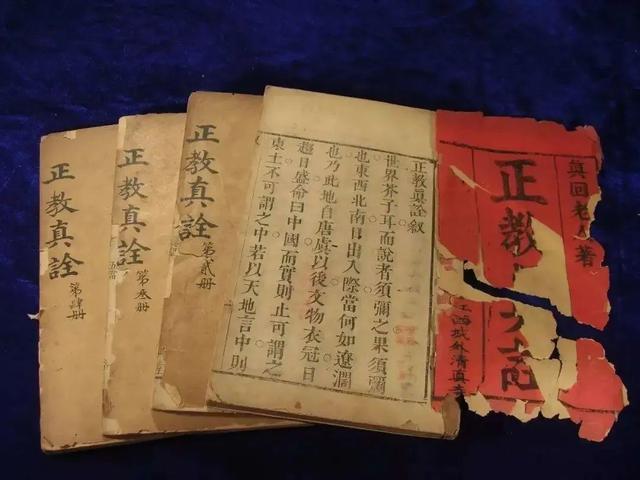 眞回老人著
正教
城外清真寺
正教眞詮敘
世界芥子耳而說者須彌之果須彌
也東西北南日出入際當何如遼濶
也乃此地自唐虞以後文物衣冠日
趨日盛命曰中國而實則止可謂之
東土不可謂之中若以天地言中則
正教真詮
第貳册
正教真詮
第叄册
正教真詮
第肆册